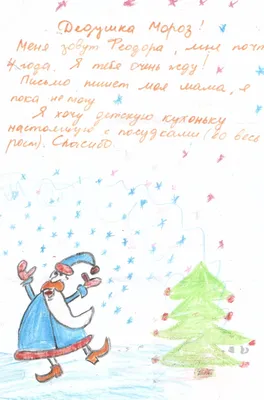 Дедушка Мороз!
Меня зовут Феодора, мне почти
4 года. Я тебя очень жду!
Письмо пишет моя мама, я
пока не могу.
Я хочу детскую кухоньку
настоящую с посудками (во весь
рост). Спасибо.